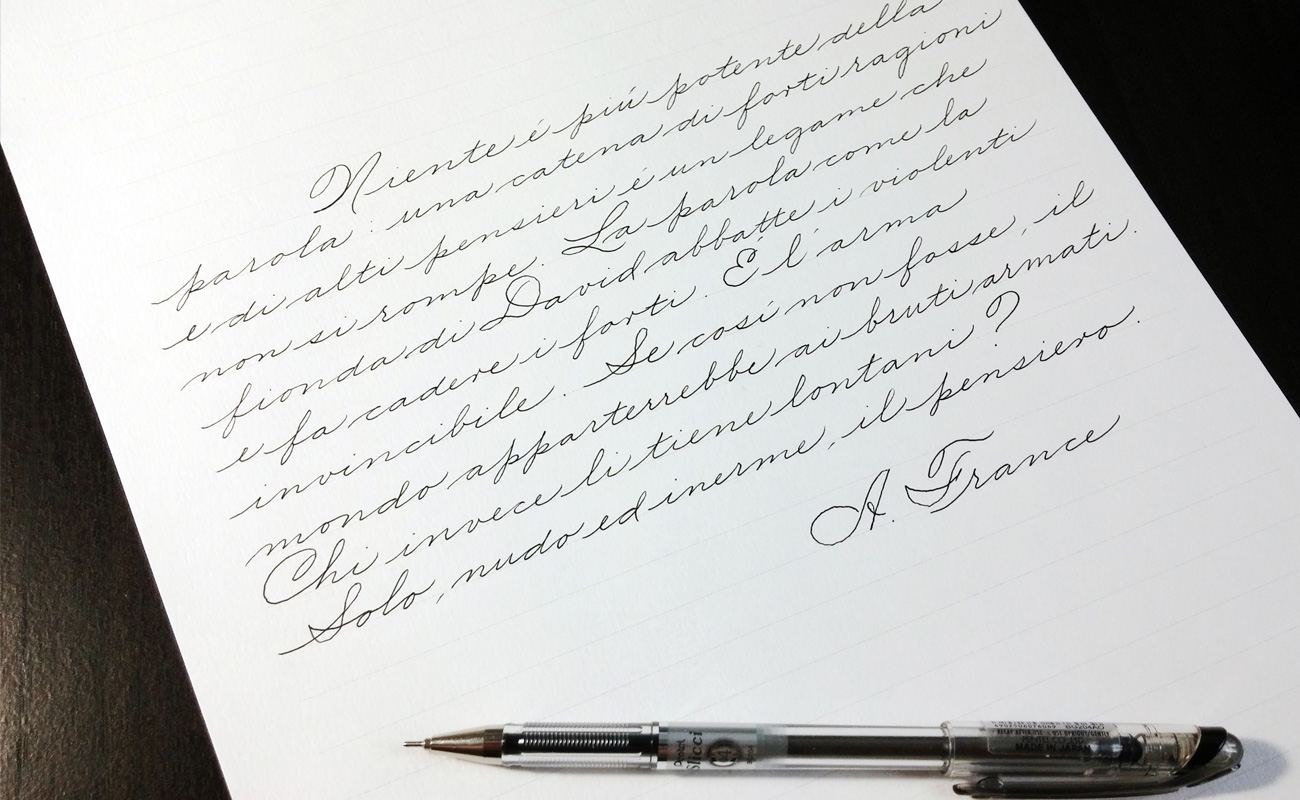 Niente é piú potente della
parola: una catena di forti ragioni
e di alti pensieri é un legame che
non si rompe. La parola come la
fionda di David abbatte i violenti
e fa cadere i forti. É l'arma
invincibile. Se cosí non fosse, il
mondo apparterrebbe ai bruti armati.
Chi invece li tiene lontani?
Solo, nudo ed inerme, il pensiero.
A. France
Pentel
Slicci
MADE IN JAPAN